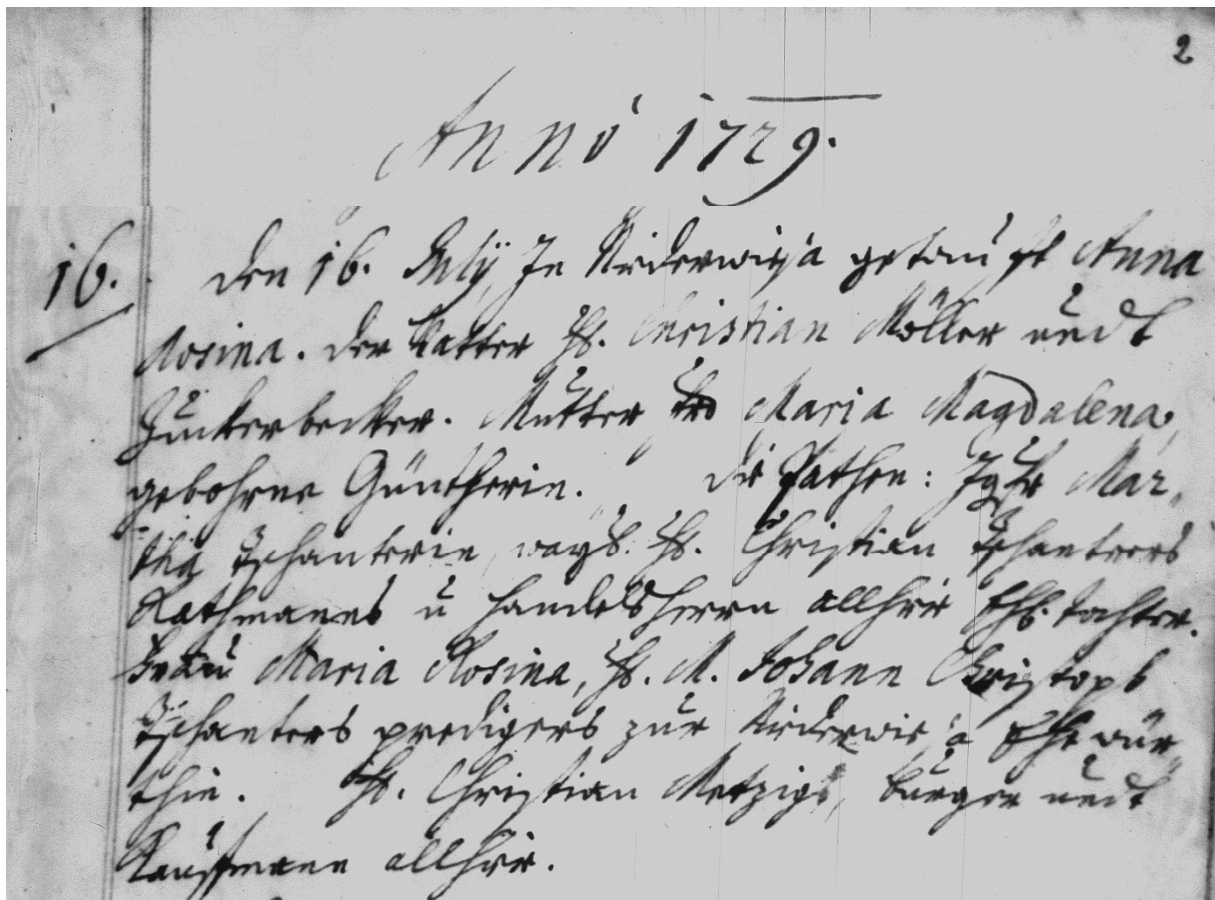 2
Anno 1729.
16. den 16. July Jn Niderwiesa getaufft Anna
Rosina. der Vatter H. Christian Möller undt
Zuckerbecker. Mutter Maria Magdalena,
gebohrne Güntherin. die Pathen: Jgfr Mar-
tha Tschanterin, weyl. H. Christian Tschanters
Rathmanns u handelsherrn allhir Ehl. tochter.
Frau Maria Rosina, H. M. Johann Christoph
Tschanters predigers zur Niderwiesa Ehewür-
thin. H. Christian Metzigs, burger undt
Kauffmann allhir.